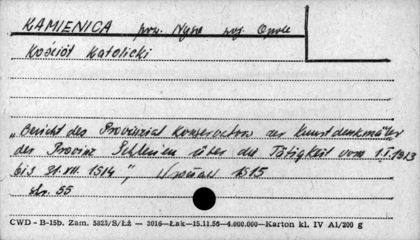 KAMIENICA pow. Nysa woj. Opole
Kościół Katolicki
"Bericht des Provinzial Konservators der Kunstdenkmäler
der Provinz Schlesien über die Tätigkeit vom 1.I.1913
bis 31.XII. 1914", Wrocław 1915
str. 55
CWD - B-15b. Zam. 5823/S/Łż — 3016—Łak—15.11.56—4.000.000—Karton kl. IV A1/200 g